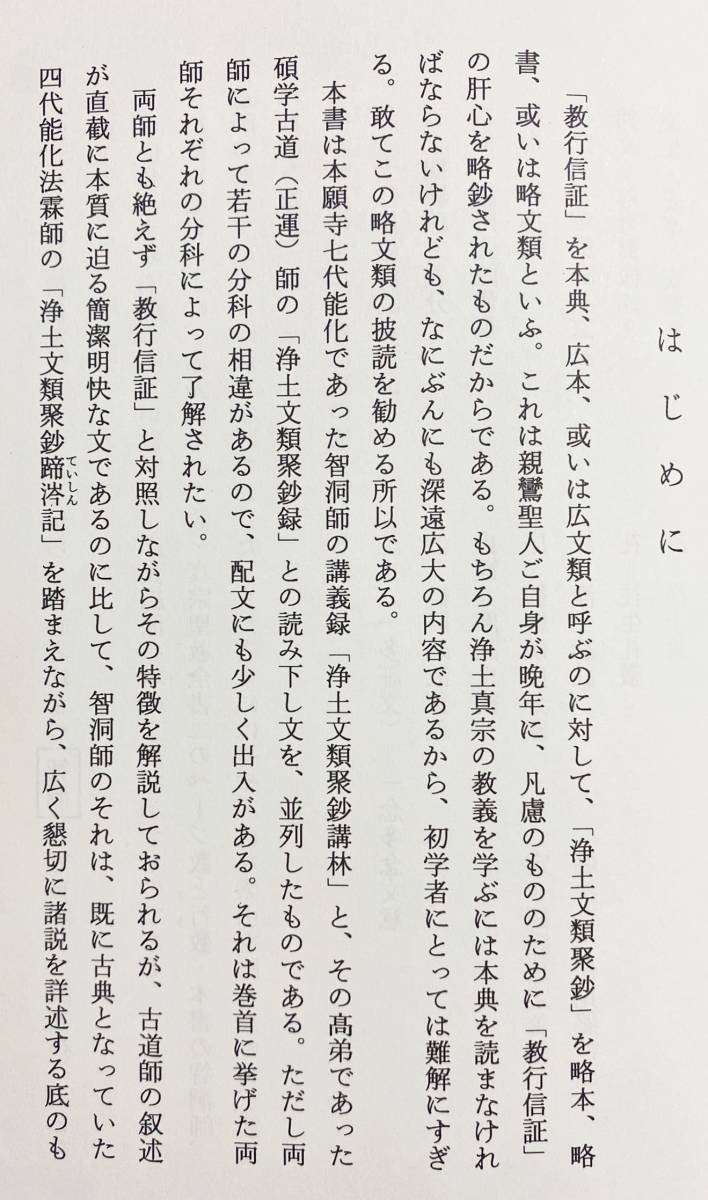 はじめに
「教行信証」を本典、広本、或いは広文類と呼ぶのに対して、「浄土文類聚鈔」を略本、略
書、或いは略文類といふ。これは親鸞聖人ご自身が晩年に、凡慮のもののために「教行信証」
の肝心を略鈔されたものだからである。もちろん浄土真宗の教義を学ぶには本典を読まなけれ
ばならないけれども、なにぶんにも深遠広大の内容であるから、初学者にとっては難解にすぎ
る。敢てこの略文類の披読を勧める所以である。
本書は本願寺七代能化であった智洞師の講義録「浄土文類聚鈔講林」と、その高弟であった
碩学古道（正運）師の「浄土文類聚鈔録」との読み下し文を、並列したものである。ただし両
師によって若干の分科の相違があるので、配文にも少しく出入がある。それは巻首に挙げた両
師それぞれの分科によって了解されたい。
両師とも絶えず「教行信証」と対照しながらその特徴を解説しておられるが、古道師の叙述
が直截に本質に迫る簡潔明快な文であるのに比して、智洞師のそれは、既に古典となっていた
四代能化法霖師の「浄土文類聚鈔蹄涔記」を踏まえながら、広く懇切に諸説を詳述する底のも
ていしん